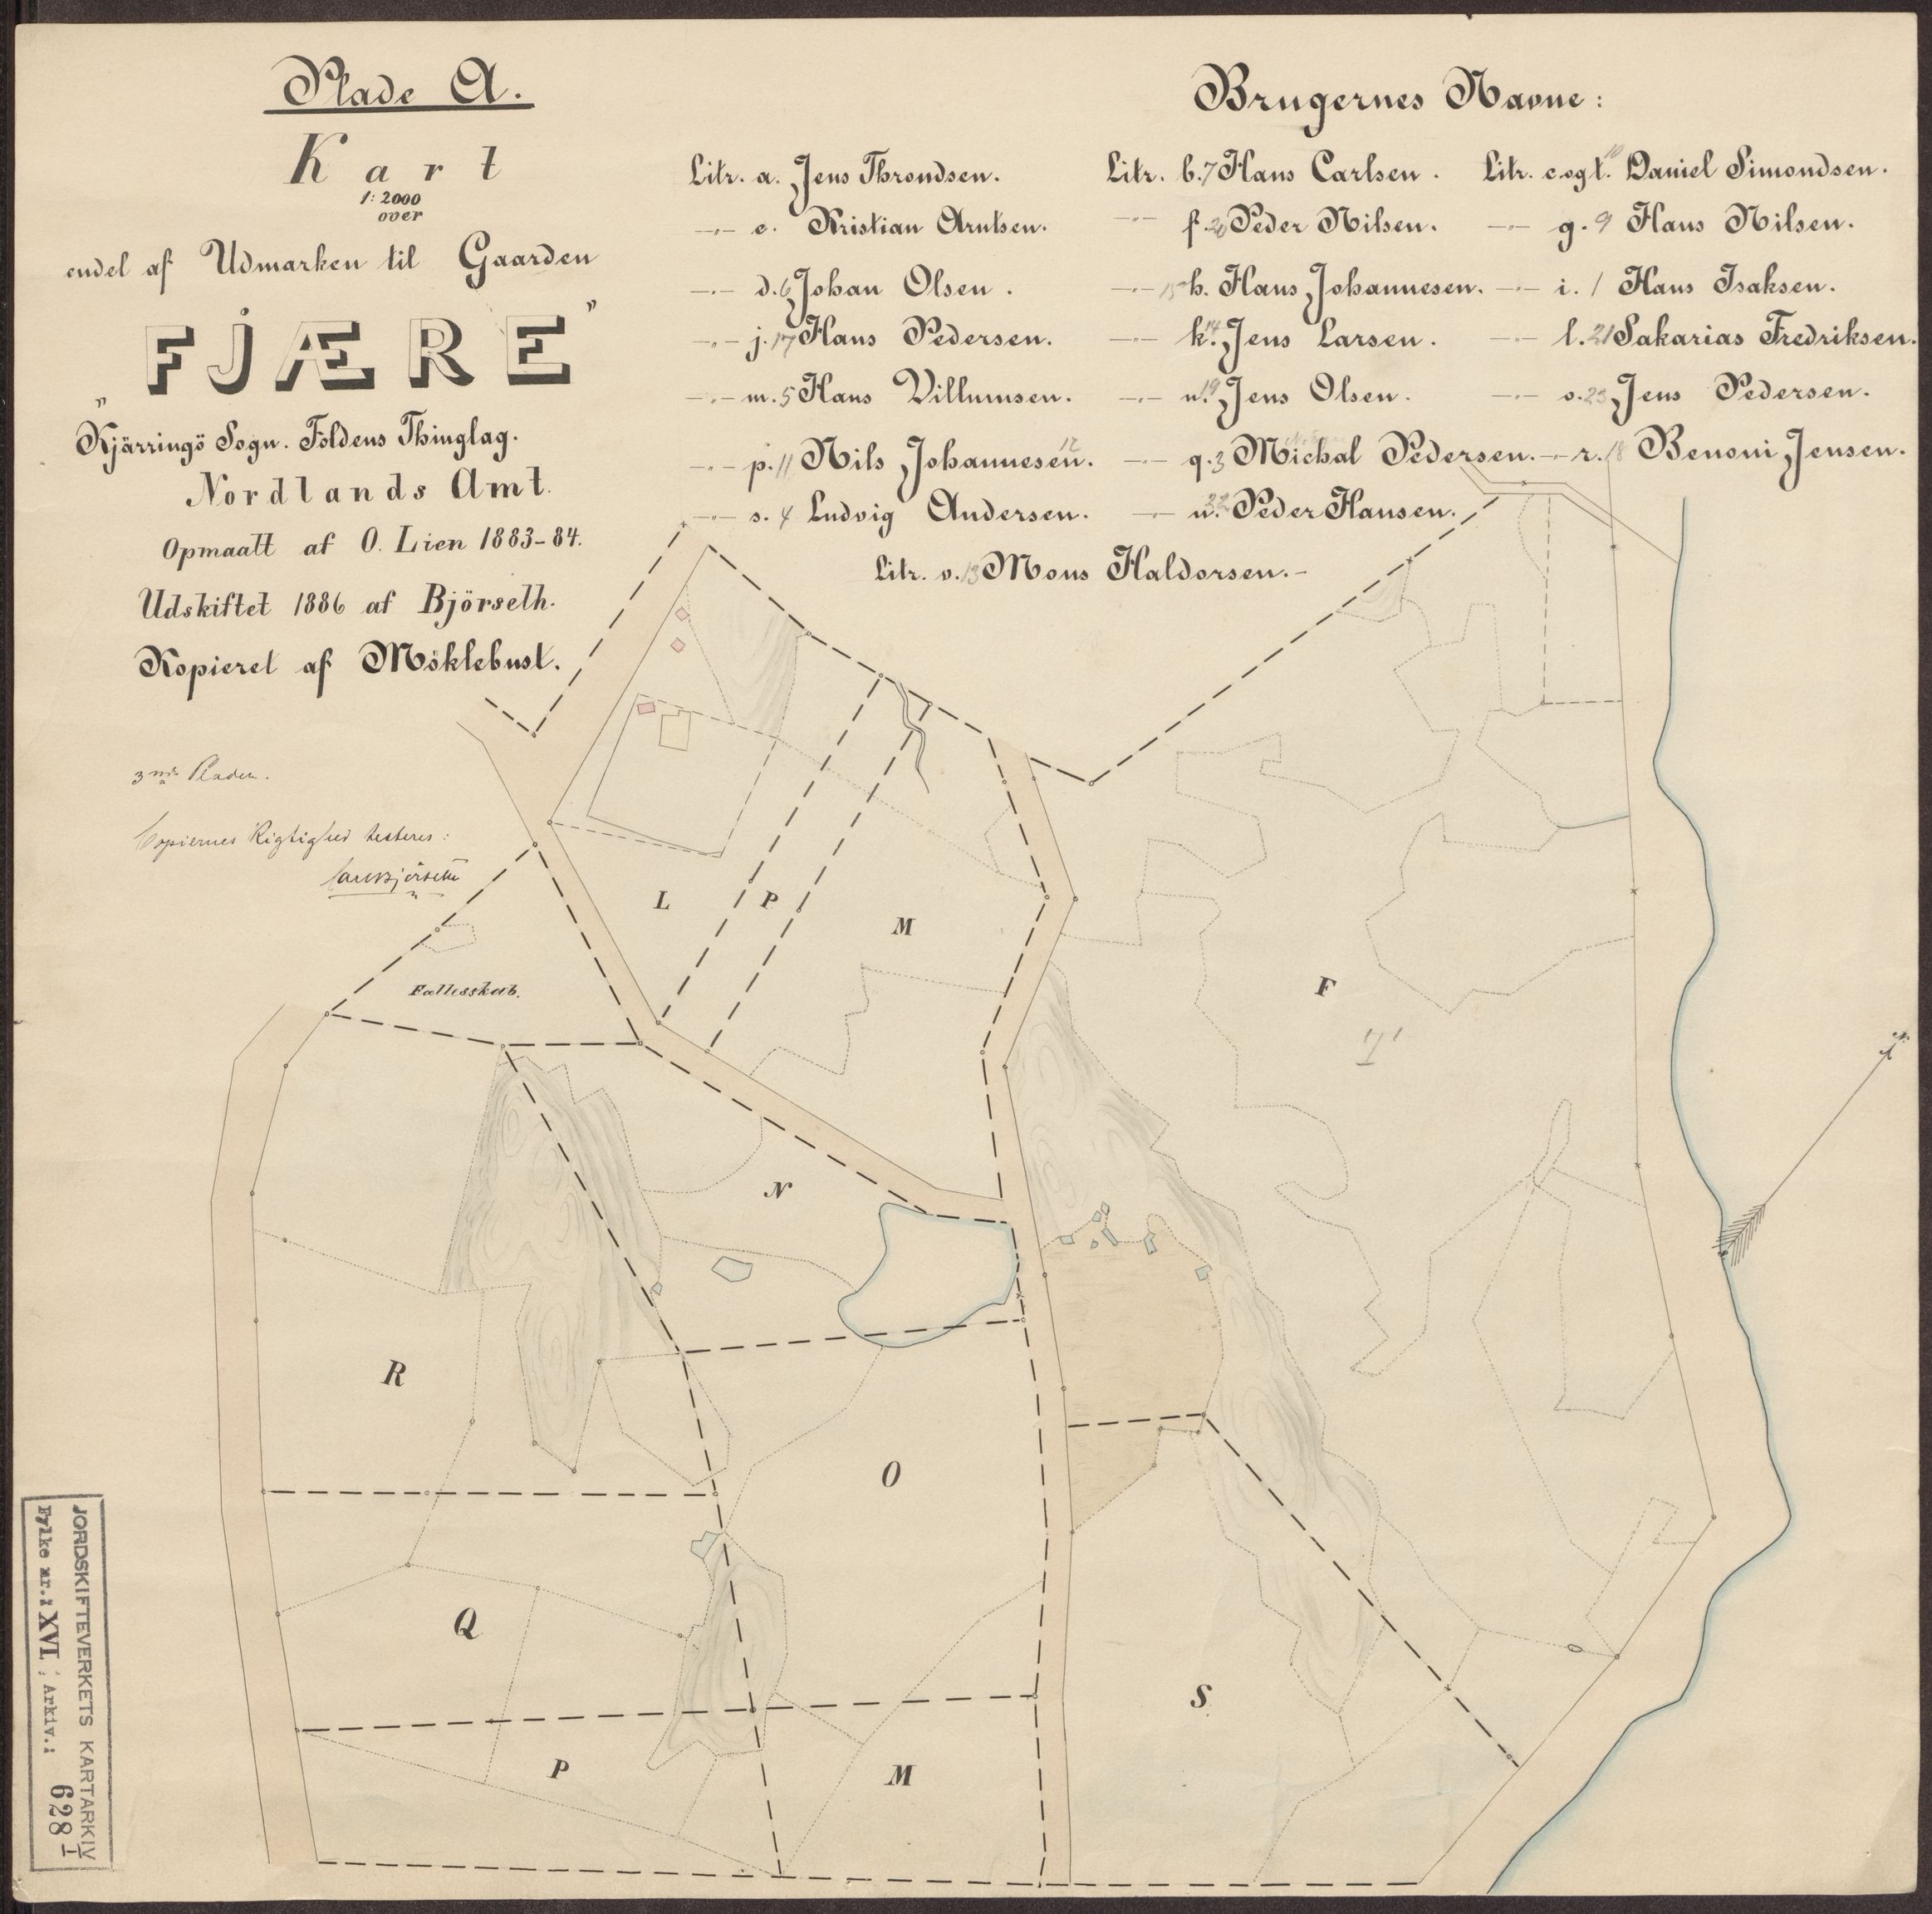 Plade A.
Kart
1:2000
over
endel af Udmarken til Gaarden
„FJÆRE”
Kjärringö Sogn. Foldens Thinglag.
Nordlands Amt.
Opmaalt af O. Lien 1883-84.
Udskiftet 1886 af Björseth.
Kopieret af Möklebust.
Brugernes Navne:
Litr. a. Jens Throndsen. Litr. b. 7 Hans Carlsen. Litr. c og t. 10 Daniel Simondsen.
—„— e. Kristian Arntsen. —„— f. 20 Peder Nilsen. —„— g. 9 Hans Nilsen.
—„— d. 6 Johan Olsen. —„— 15 h. Hans Johannesen. —„— i. 1 Hans Isaksen.
—„— j. 17 Hans Pedersen. —„— k. 14 Jens Larsen. —„— l. 21 Sakarias Fredriksen.
—„— m. 5 Hans Villumsen. —„— n. 19 Jens Olsen. —„— o. 23 Jens Pedersen.
—„— p. 11 Nils Johannesen. 12 —„— q. 3 Michal Pedersen. —„— r. 18 Benoni Jensen.
—„— s. 4 Ludvig Andersen. —„— u. 22 Peder Hansen.
Litr. v. 13 Mons Haldorsen.-
3 Plader.
Copiernes Rigtighed testeres:
L
P
M
Fællesskab.
F
T
N
R
O
Q
S
P
M
JORDSKIFTEVERKETS KARTARKIV
Fylke nr.: XVI ; Arkiv.: 628 I